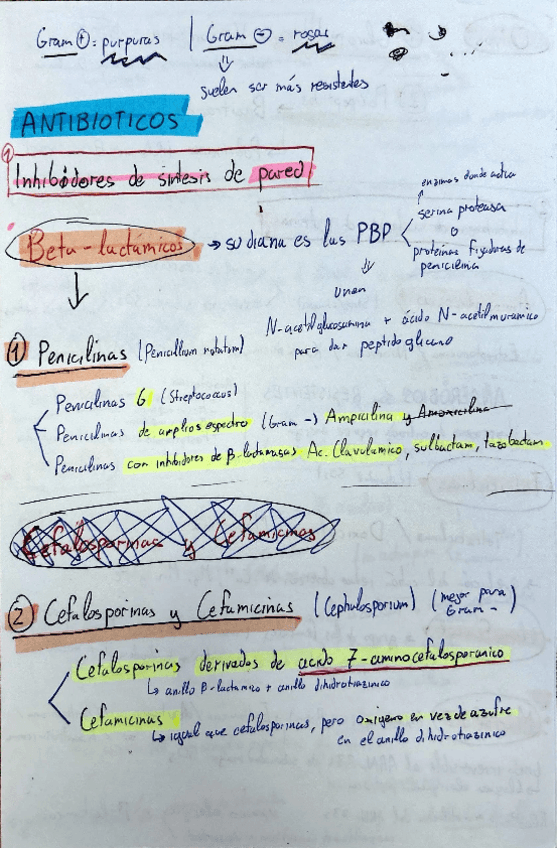 Gram ⊕: purpuras | Gram ⊖ = rosas
⇓
suelen ser más resistentes
ANTIBIOTICOS
① Inhibidores de síntesis de pared
Beta-lactámicos → su diana es las PBP
enzimas donde actua
↑
serina proteasa
o
proteínas fijadoras de penicilina
⇓
unen
N-acetilglucosamina + ácido N-acetilmuramico
para dar peptidoglicano
① Penicilinas (Penicillium notatum)
Penicilinas G (Streptococos)
Penicilinas de amplios espectro (Gram -) Ampicilina y Amoxicilina
Penicilinas con inhibidores de β-lactamasas Ac. Clavulamico, sulbactam, tazobactam
Cefalosporinas y Cefamicinas
② Cefalosporinas y Cefamicinas (Cephulosporium) (mejor para Gram -)
Cefalosporinas derivados de acido 7-aminocefalosporanico
↳ anillo β-lactamico + anillo dihidrotiazinico
Cefamicinas
↳ igual que cefalosporinas, pero oxigeno en vez de azufre
en el anillo dihidrotiazinico